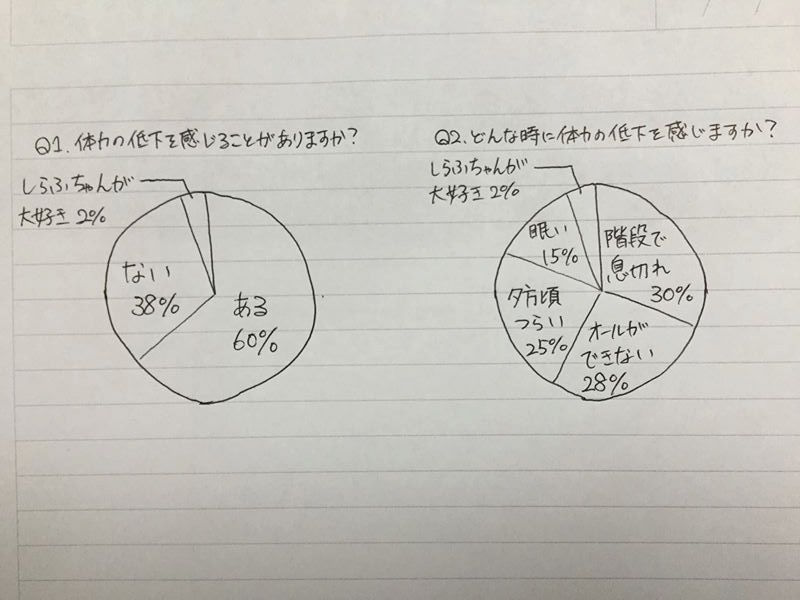 Q1.体力の低下を感じることがありますか?
しらふちゃんが
大好き 2%
ない
38%
ある
60%
Q2.どんな時に体力の低下を感じますか?
しらふちゃんが
大好き 2%
眠い
15%
階段で
息切れ
30%
夕方頃
つらい
25%
オールが
できない
28%